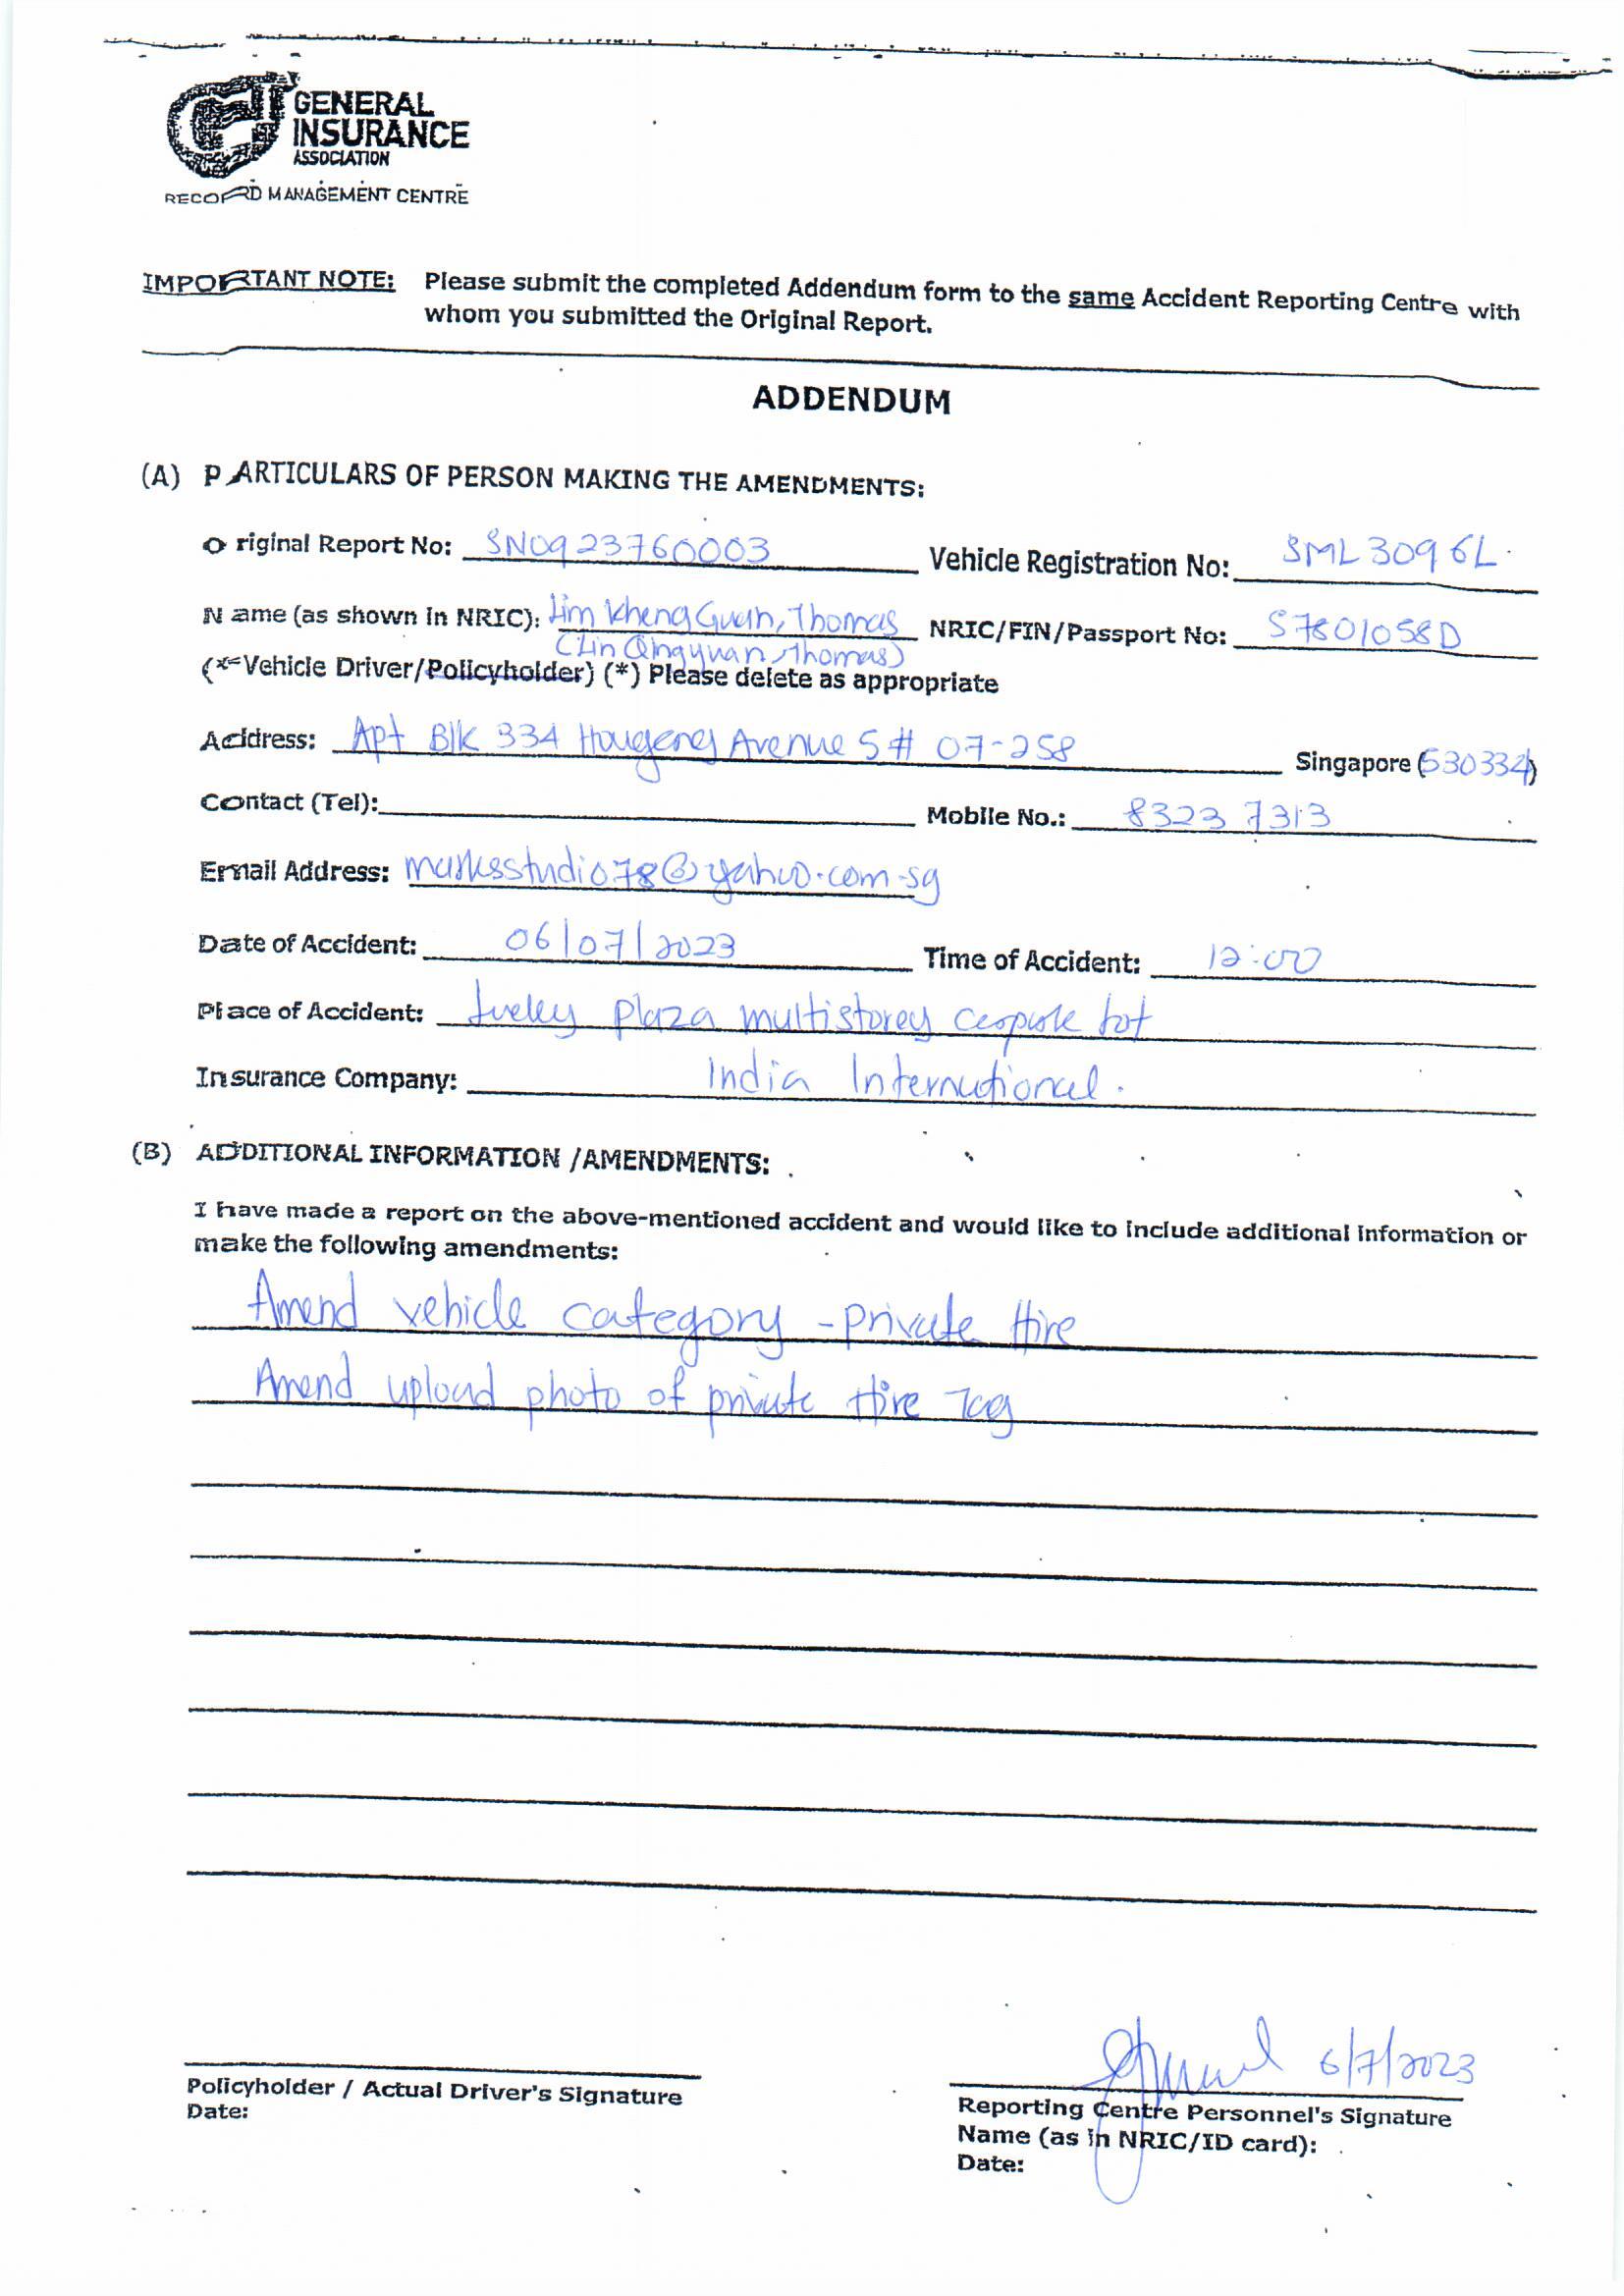 GENERAL
INSURANCE
ASSOCIATION
RECORD MANAGEMENT CENTRE
IMPORTANT NOTE: Please submit the completed Addendum form to the same Accident Reporting Centre with
whom you submitted the Original Report.
ADDENDUM
(A) PARTICULARS OF PERSON MAKING THE AMENDMENTS:
Original Report No: SN0923760003 Vehicle Registration No: SML3096L
Name (as shown in NRIC): Lim Kheng Guan, Thomas NRIC/FIN/Passport No: S7801058D
(Lin Qingyuan, Thomas)
(*Vehicle Driver/Policyholder) (*) Please delete as appropriate
Address: Apt Blk 334 Hougang Avenue 5 # 07-258 Singapore (530334)
Contact (Tel): Mobile No.: 8323 7313
Email Address: marksstudio78@yahoo.com.sg
Date of Accident: 06/07/2023 Time of Accident: 12:00
Place of Accident: plaza multistorey carpark lot
Insurance Company: India International.
(B) ADDITIONAL INFORMATION /AMENDMENTS:
I have made a report on the above-mentioned accident and would like to include additional information or
make the following amendments:
Amend vehicle category - private Hire
Amend upload photo of private Hire Tag
6/7/2023
Policyholder / Actual Driver's Signature
Date:
Reporting Centre Personnel's Signature
Name (as in NRIC/ID card):
Date: